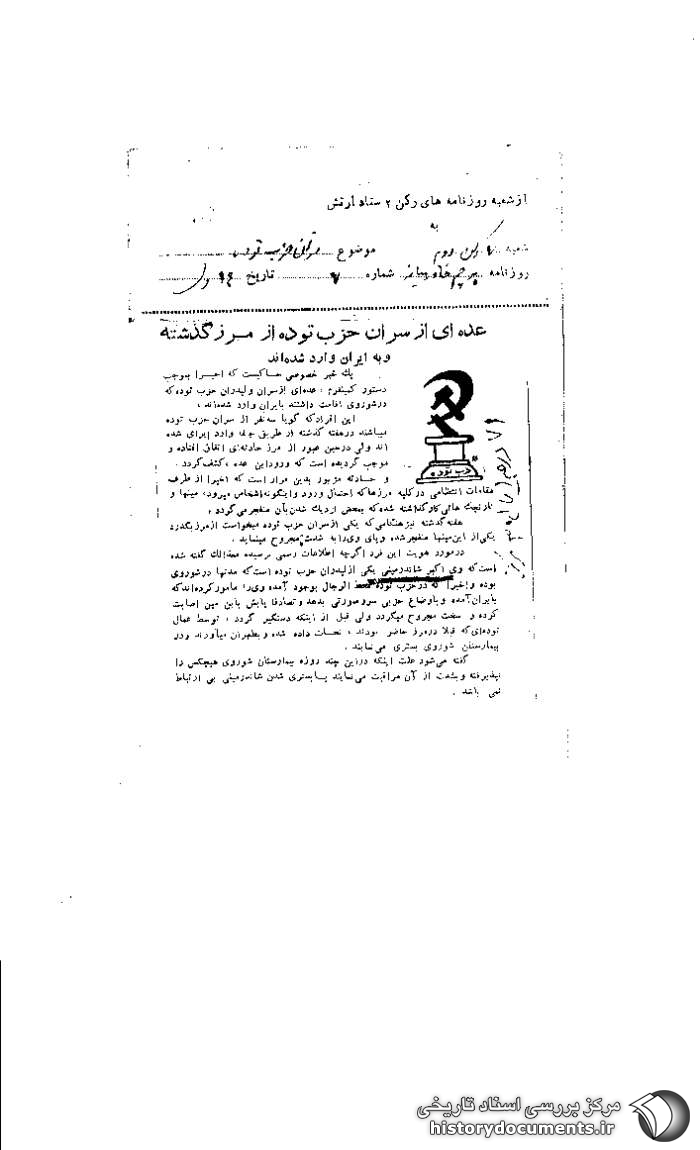 از شعبه روزنامه های رکن ۲ ستاد ارتش
به
شعبه ۷ رکن دوم موضوع سران حزب توده
روزنامه پرچم خاورمیانه شماره ۷ تاریخ
عده ای از سران حزب توده از مرز گذشته
و به ایران وارد شده اند
یک خبر خصوصی حاکیست که اخیرا بموجب
دستور کمینفرم ، عده‌ای از سران و لیدران حزب توده که
در شوروی اقامت داشتند بایران وارد شده‌اند ،
این افراد که گویا سه نفر از سران حزب توده
میباشند در هفته گذشته از طریق جلفا وارد ایران شده
اند ولی در حین عبور از مرز حادثه‌ای اتفاق افتاده و
موجب گردیده است که ورود این عده ، کشف گردد .
و حادثه مزبور بدین قرار است که اخیرا از طرف
حزب توده
مقامات انتظامی در کلیه مرزها که احتمال ورود اینگونه اشخاص میرود، مینها و
نارنجک هائی کار گذاشته شده که بمحض نزدیک شدن بآن منفجر می گردد ،
هفته گذشته نیز هنگامی که یکی از سران حزب توده میخواست از مرز بگذرد
یکی از این مینها منفجر شده و پای وی را به شدت مجروح مینماید .
در مورد هویت این فرد اگرچه اطلاعات رسمی نرسیده معذالک گفته شده
است که وی اکبر شاندرمینی یکی از لیدران حزب توده است که مدتها در شوروی
بوده و اخیرا که در حزب توده قحط الرجال بوجود آمده وی را مامور کرده‌اند که
بایران آمده و باوضاع حزبی سر و صورتی بدهد و تصادفا پایش باین مین اصابت
کرده و سخت مجروح میگردد ولی قبل از اینکه دستگیر گردد ، توسط عمال
توده‌ای که قبلا در مرز حاضر بودند ، نجات داده شده و بطهران میآورند و در
بیمارستان شوروی بستری می نمایند .
گفته می‌شود علت اینکه در این چند روزه بیمارستان شوروی هیچکس را
نپذیرفته و بشدت از آن مراقبت می نمایند با بستری شدن شاندرمینی بی ارتباط
نمی باشد .
مرکز بررسی اسناد تاریخی
historydocuments.ir